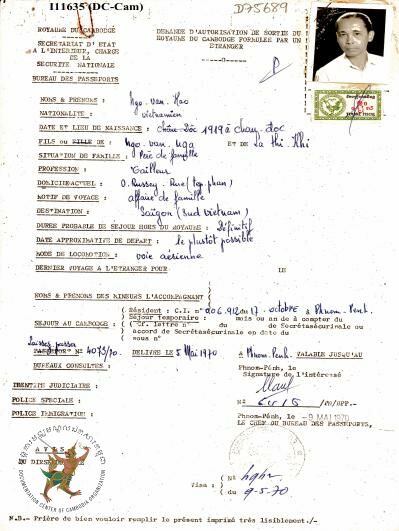 I11635 (DC-Cam)
D75689
ROYAUME DU CAMBODGE
SECRETARIAT D'ETAT
A L'INTERIEUR, CHARGE
DE LA
SECURITE NATIONALE
BUREAU DES PASSEPORTS
DEMANDE D'AUTORISATION DE SORTIE DU
ROYAUME DU CAMBODGE FORMULEE PAR UN
ETRANGER
P
NOMS & PRENOMS : Ngo-van-Hao
NATIONALITE : vietnamien
DATE ET LIEU DE NAISSANCE : Châu-Dôc 1919 à chau-doc
FILS ou FILLE DE : Ngo-van-Nga ET DE La thi-Khi
SITUATION DE FAMILLE : Père de famille
PROFESSION : Tailleur
DOMICILE ACTUEL : O. Russey - Rue (Tep.phan)
MOTIF DE VOYAGE : affaire de famille
DESTINATION : Saigon (Sud vietnam)
DUREE PROBABLE DE SEJOUR HORS DU ROYAUME : Définitif
DATE APPROXIMATIVE DE DEPART : le plustôt possible
MODE DE LOCOMOTION : voie aérienne
DERNIER VOYAGE A L'ETRANGER POUR LE
NOMS & PRENOMS DES MINEURS L'ACCOMPAGNANT
SEJOUR AU CAMBODGE :
Résident : C.I. n° 206.912 du 17 octobre à Phnom-Penh.
Séjour temporaire : mois ou an à compter du
Cf. lettre n° du de Secrétariale ou
accord de Secrétasécuriale en date du
sous n°
laissez passer
PASSEPORT N° 4073/70. DELIVRE LE 5 Mai 1970 A Phnom-Penh VALABLE JUSQU'AU
BUREAUX CONSULTES :
Phnom-Penh, le
Signature de l'intéressé
IDENTITE JUDICIAIRE :
POLICE SPECIALE :
POLICE IMMIGRATION :
Phnom-Penh, le - 9 MAI 1970
LE CHEF DU BUREAU DES PASSEPORTS,
AVIS
DU DIRSE
Visa :
N°
du 9-5-70
DOCUMENTATION CENTER OF CAMBODIA ORGANIZATION
N.B.- Prière de bien vouloir remplir le présent imprimé très lisiblement./-